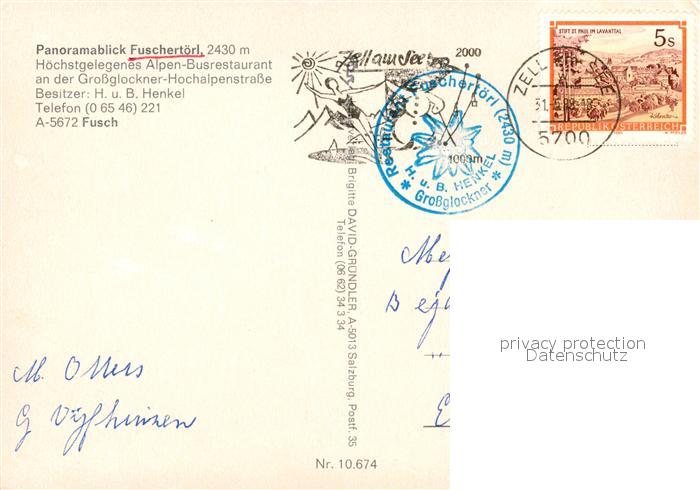 Panoramablick Fuschertörl, 2430 m
Höchstgelegenes Alpen-Busrestaurant
an der Großglockner-Hochalpenstraße
Besitzer: H. u. B. Henkel
Telefon (0 65 46) 221
A-5672 Fusch
Zell am See
2000
1000m
Restaurant Fuschertörl (2430 m)
H. u. B. HENKEL
* Großglockner *
ZELL AM SEE
5700
STIFT ST. PAUL IM LAVANTTAL
5s
REPUBLIK ÖSTERREICH
Brigitte DAVID-GRÜNDLER, A-5013 Salzburg, Postf. 35
Telefon (06 62) 34 3 34
M. Otters
G
Nr. 10.674
privacy protection
Datenschutz